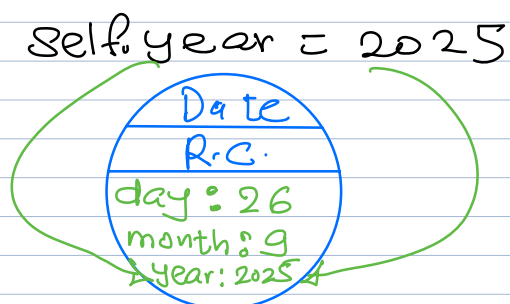 self.year = 2025
Date
R.C.
day: 26
month: 9
year: 2025